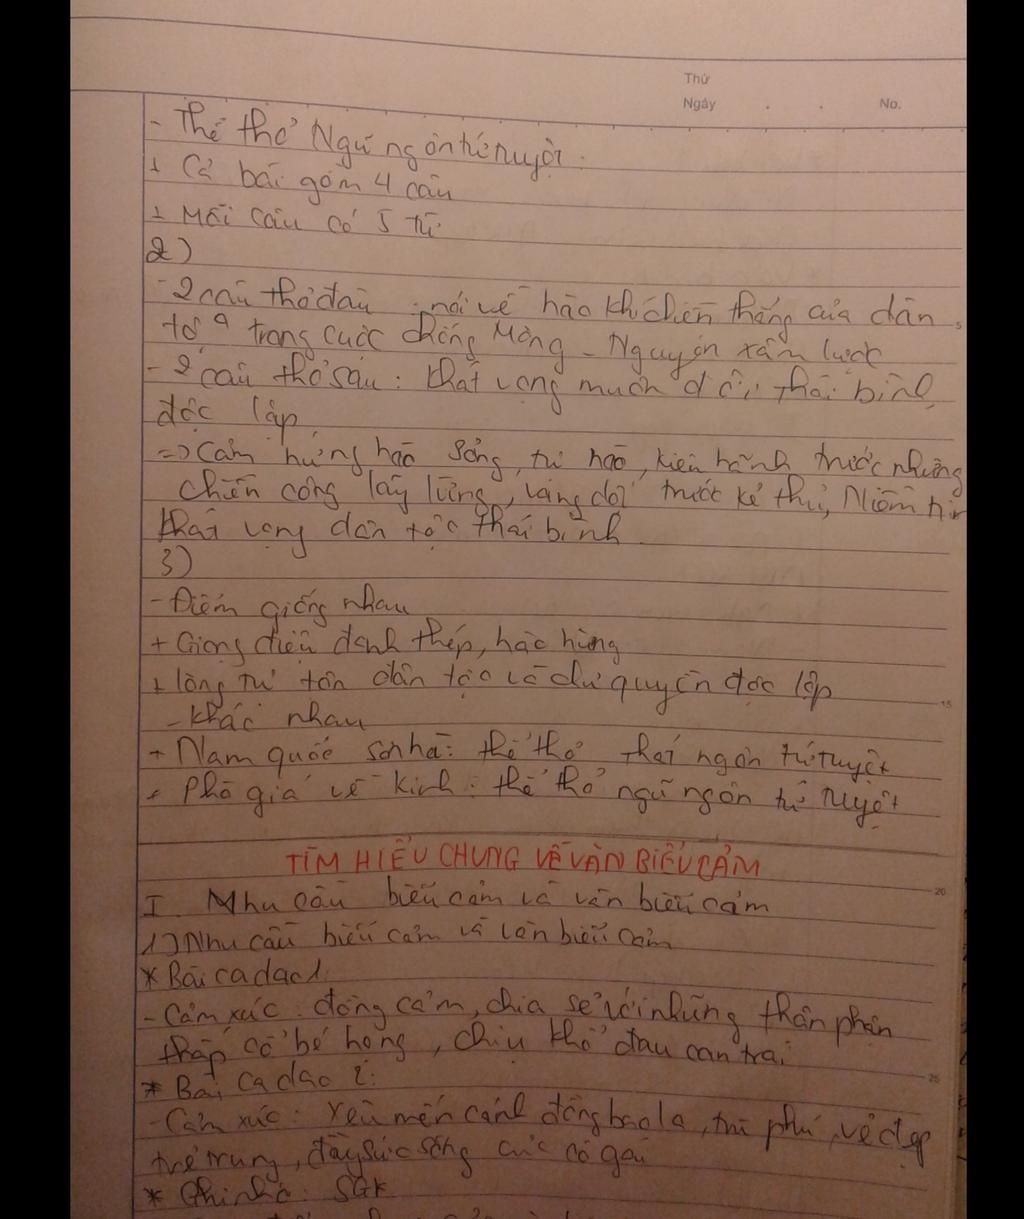 Thứ
Ngày . . No.
- Thể thơ Ngũ ngôn tứ tuyệt.
+ Cả bài gồm 4 câu
+ Mỗi câu có 5 từ
2)
- 2 câu thơ đầu : nói về hào khí chiến thắng của dân
tộc trong cuộc chống Mông - Nguyên xâm lược
- 2 câu thơ sau : khát vọng muôn đời, thái bình,
độc lập
=> Cảm hứng hào sảng, tự hào, kiêu hãnh trước những
chiến công lẫy lừng, vang dội trước kẻ thù, Niềm tin
khát vọng dân tộc thái bình
3)
- Điểm giống nhau
+ Giọng điệu đanh thép, hào hùng
+ lòng tự tôn dân tộc về chủ quyền độc lập
15
- khác nhau
+ Nam quốc sơn hà : thể thơ thất ngôn tứ tuyệt
+ Phò giá về kinh : thể thơ ngũ ngôn tứ tuyệt
TÌM HIỂU CHUNG VỀ VĂN BIỂU CẢM
20
I. Nhu cầu biểu cảm và văn biểu cảm
1) Nhu cầu biểu cảm và văn biểu cảm
* Bài ca dao 1:
- Cảm xúc : đồng cảm, chia sẻ với những thân phận
thấp cổ bé họng, chịu khổ đau oan trái
* Bài ca dao 2:
25
- Cảm xúc : Yêu mến cánh đồng bao la, trù phú, vẻ đẹp
trẻ trung, đầy sức sống của cô gái
* Ghi nhớ : SGK